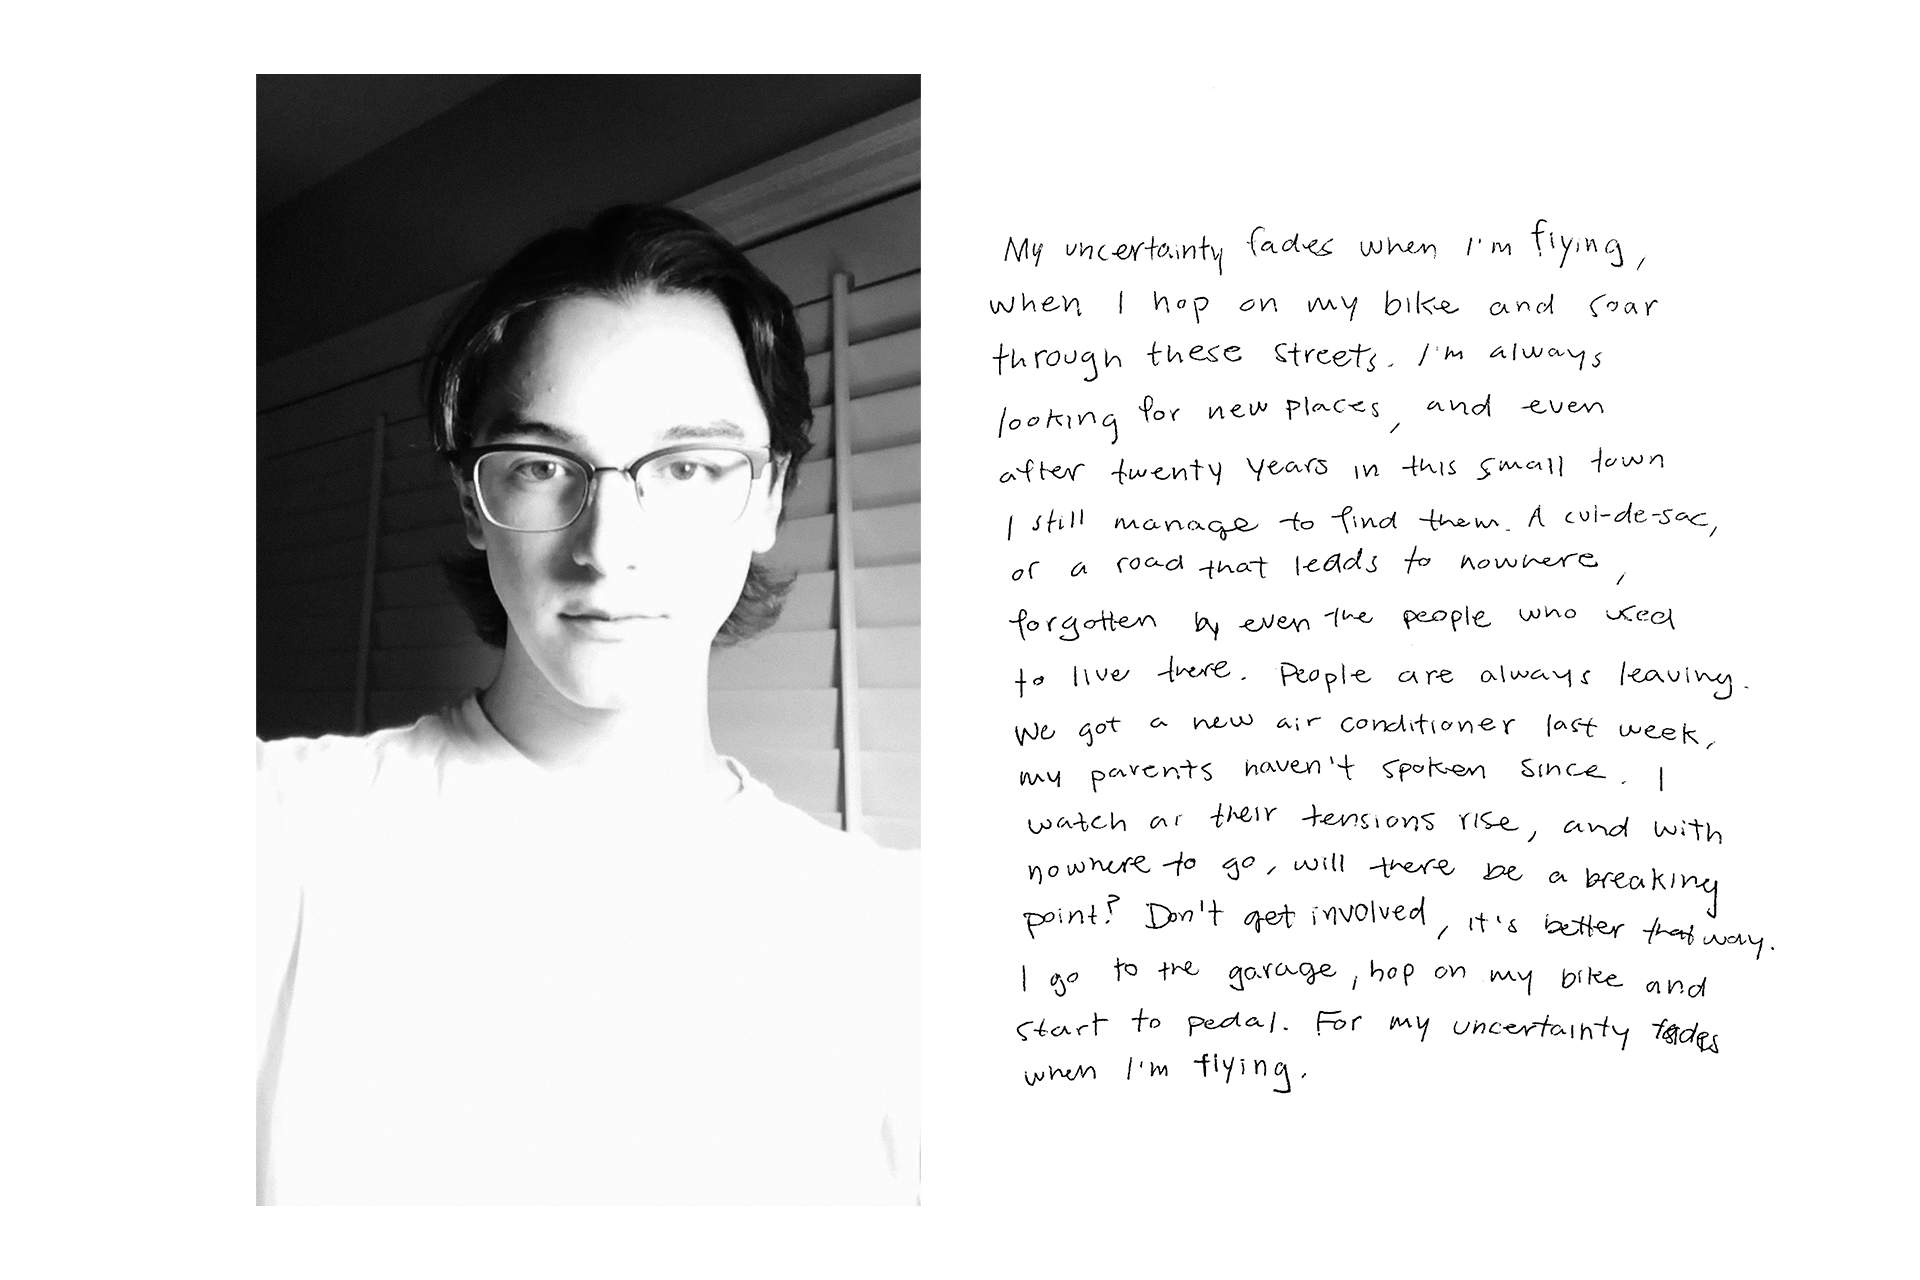 My uncertainty fades when I'm flying,
when I hop on my bike and soar
through these streets. I'm always
looking for new places, and even
after twenty years in this small town
I still manage to find them. A cul-de-sac,
or a road that leads to nowhere,
forgotten by even the people who used
to live there. People are always leaving.
We got a new air conditioner last week,
my parents haven't spoken since. I
watch as their tensions rise, and with
nowhere to go, will there be a breaking
point? Don't get involved, it's better that way.
I go to the garage, hop on my bike and
start to pedal. For my uncertainty fades
when I'm flying.